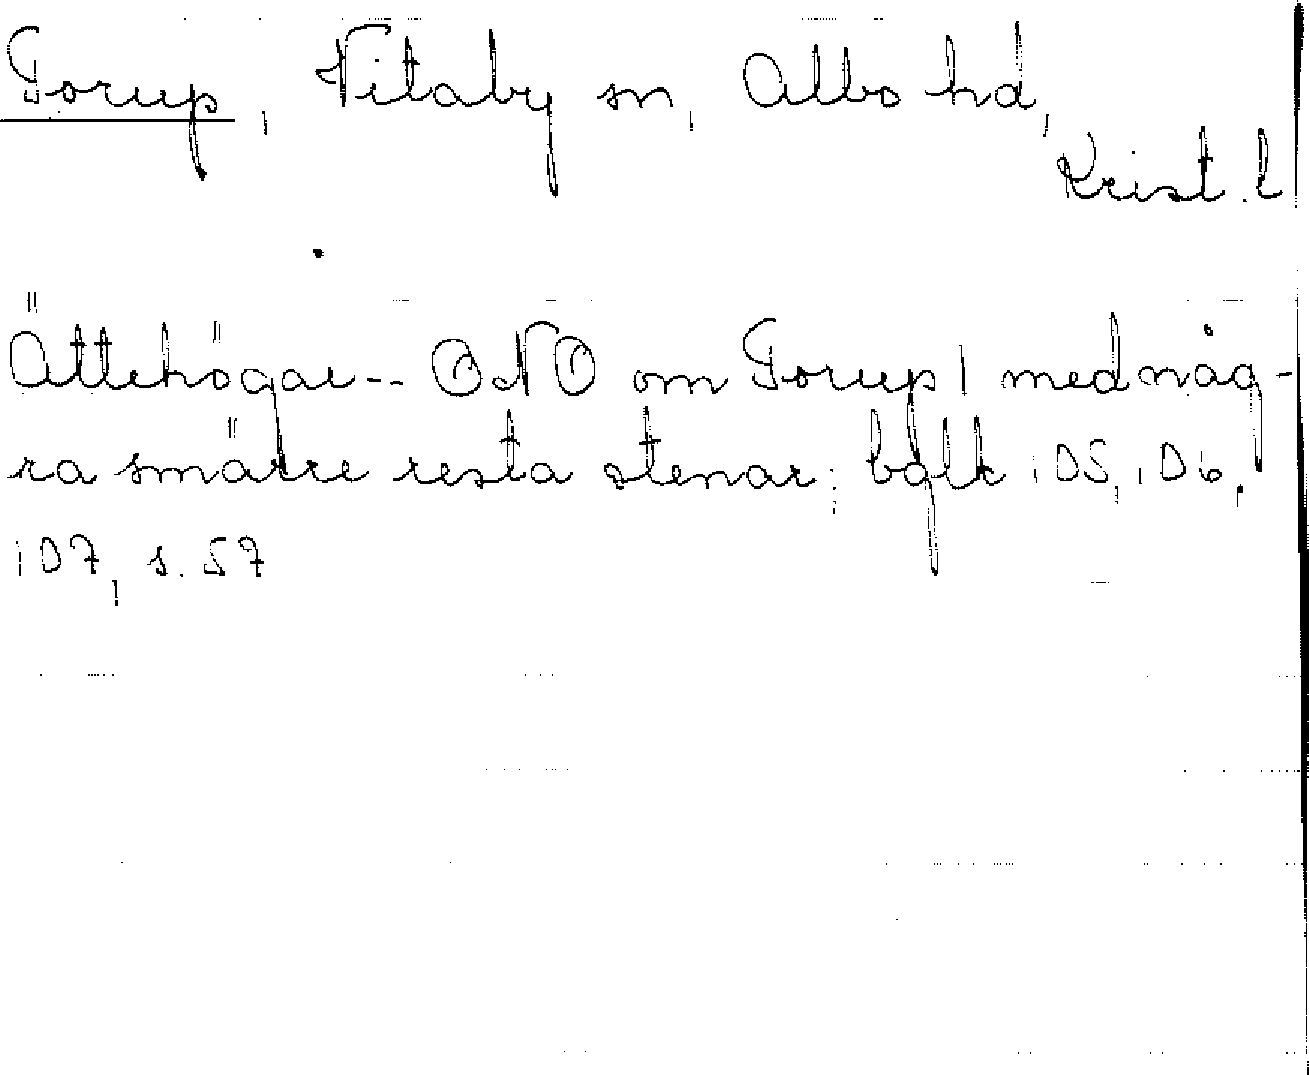 Torup, Vitaby sn, Albo hd,
Krist. l
Ättehögar -- ONO om Torup | med någ-
ra smärre resta stenar; bglk 1D5, 1D6,
1D7, s. 57